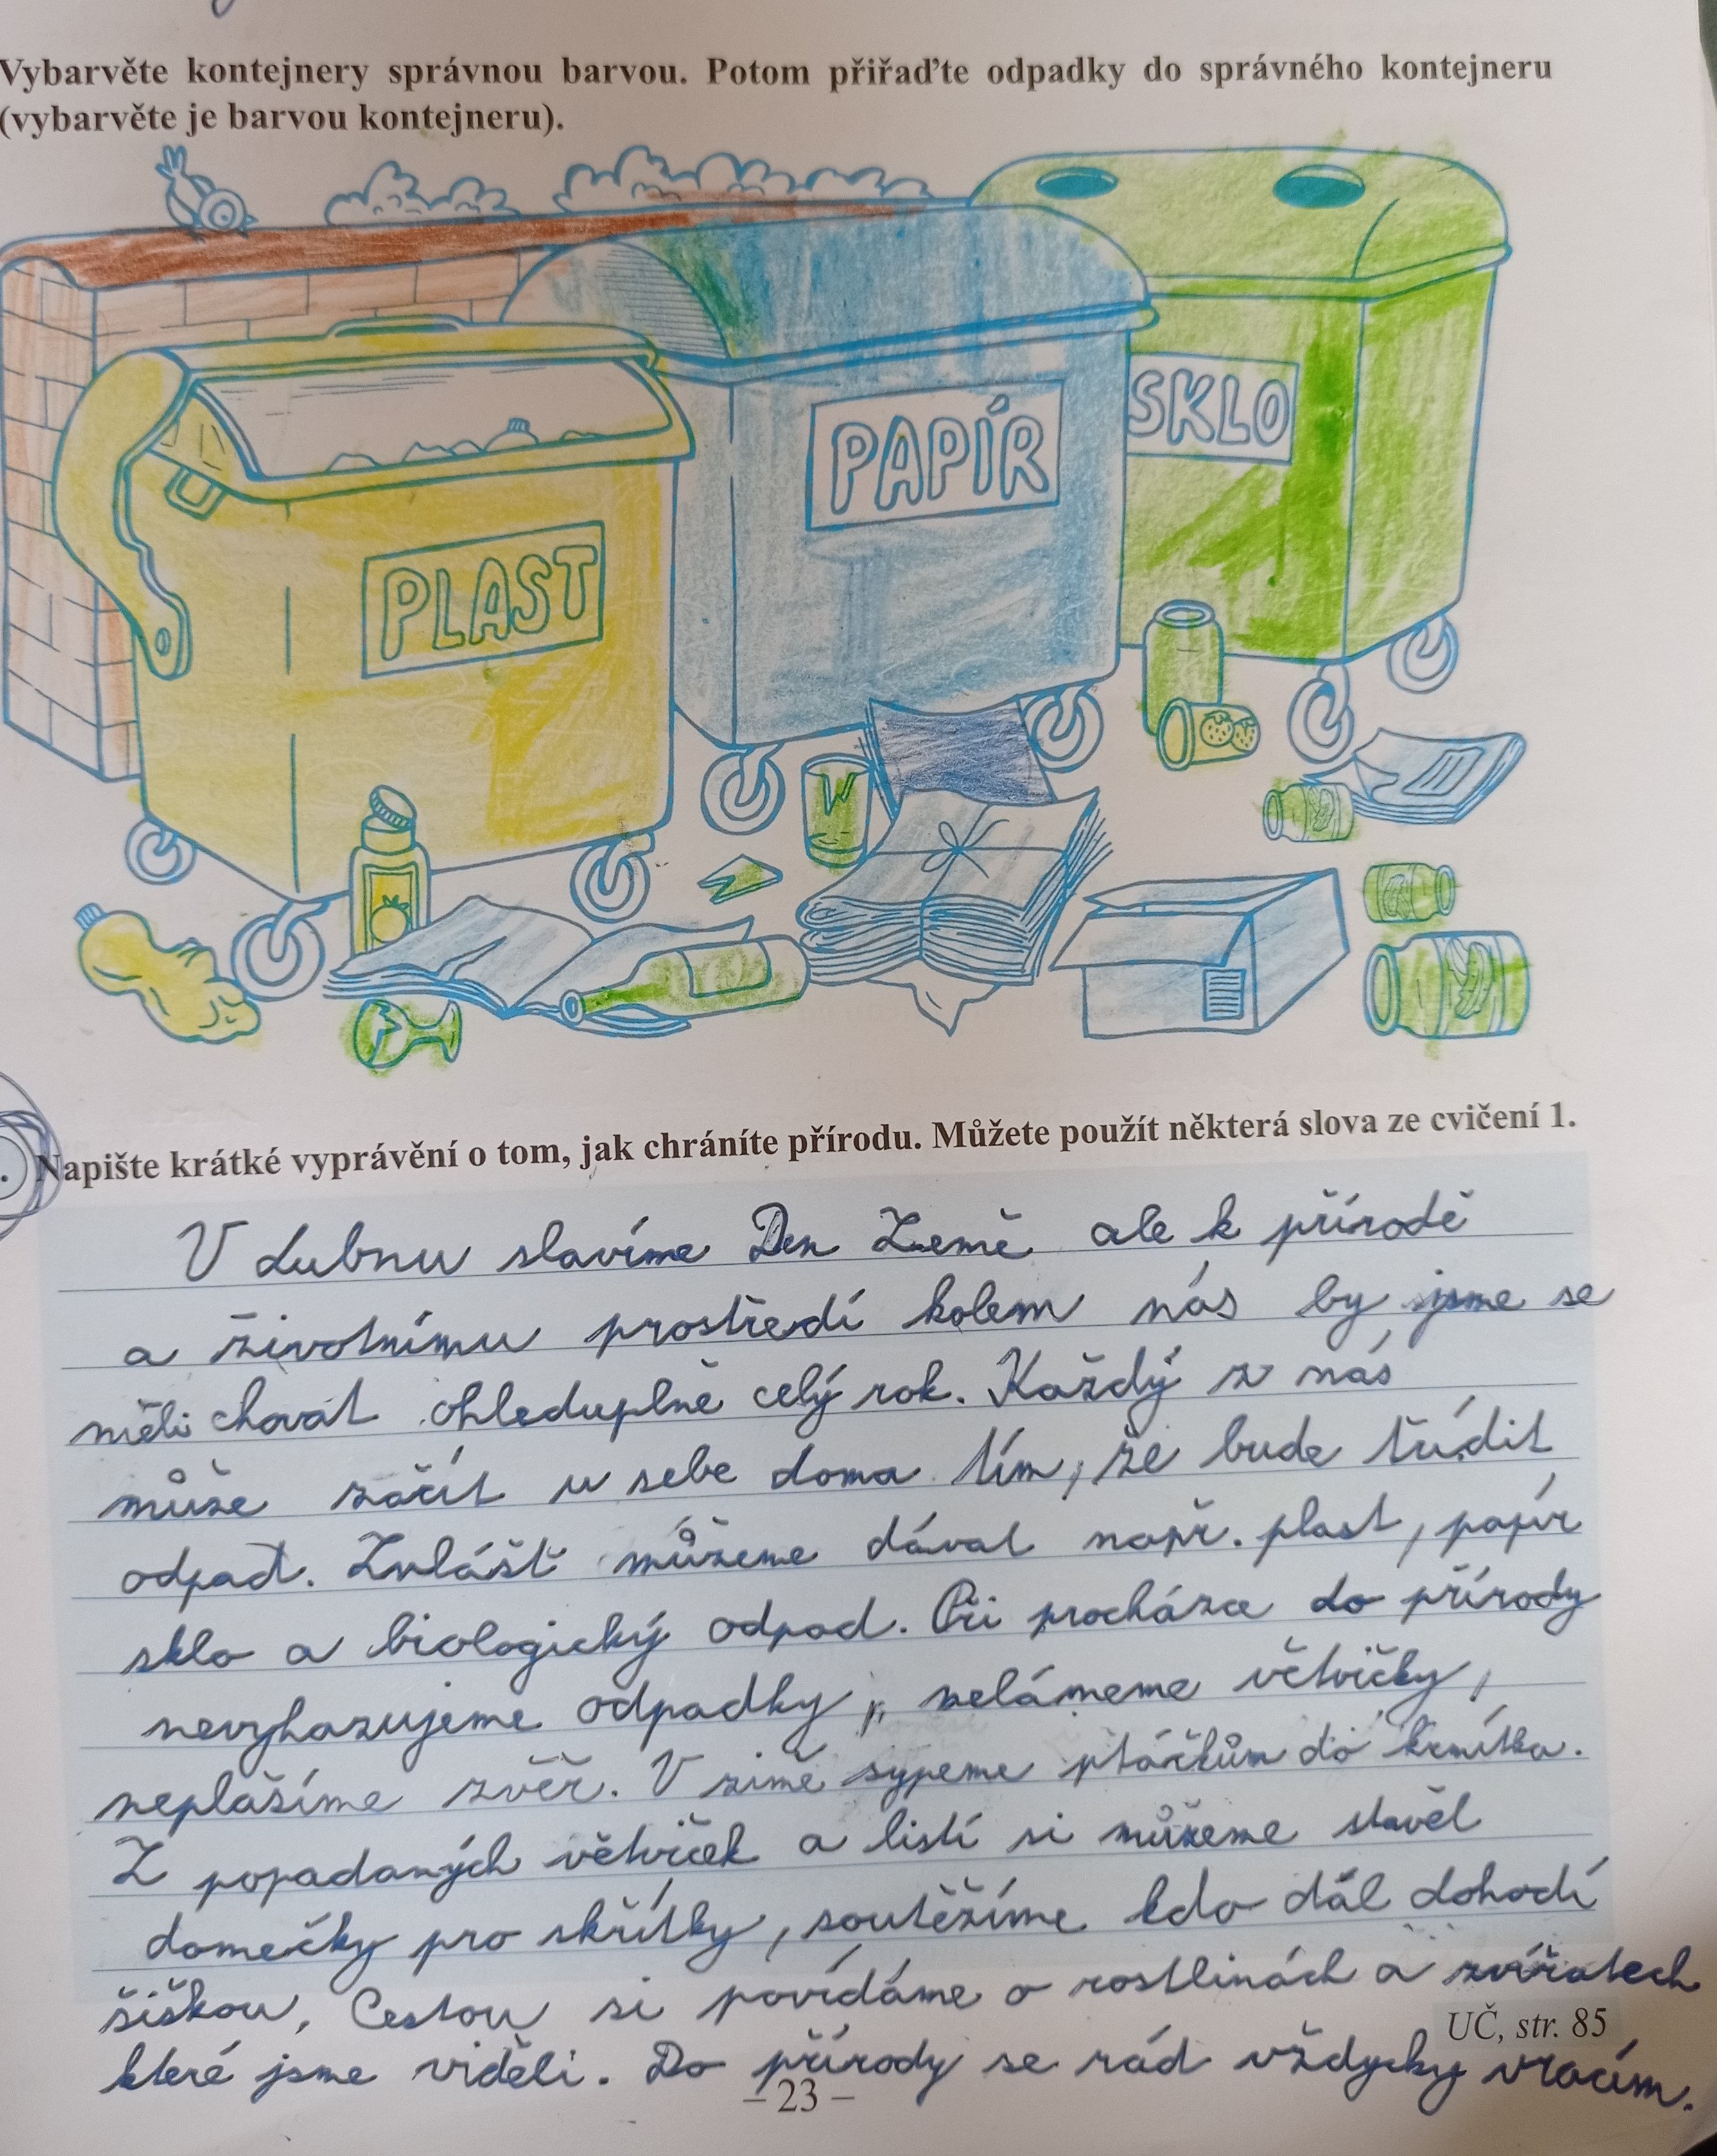 Vybarvěte kontejnery správnou barvou. Potom přiřaďte odpadky do správného kontejneru
(vybarvěte je barvou kontejneru).
SKLO
PAPÍR
PLAST
Napište krátké vyprávění o tom, jak chráníte přírodu. Můžete použít některá slova ze cvičení 1.
V dubnu slavíme Den Země ale k přírodě
a životnímu prostředí kolem nás by jsme se
měli chovat ohleduplně celý rok. Každý z nás
může začít u sebe doma tím, že bude třídit
odpad. Zvlášť můžeme dávat např. plast, papír
sklo a biologický odpad. Při procházce do přírody
nevyhazujeme odpadky, nelámeme větvičky,
neplašíme zvěř. V zimě sypeme ptáčkům do krmítka.
Z popadaných větviček a listí si můžeme stavět
domečky pro skřítky, soutěžíme kdo dál dohodí
šiškou, Cestou si povídáme o rostlinách a zvířatech
UČ, str. 85
které jsme viděli. Do přírody se rád vždycky vracím.
– 23 –